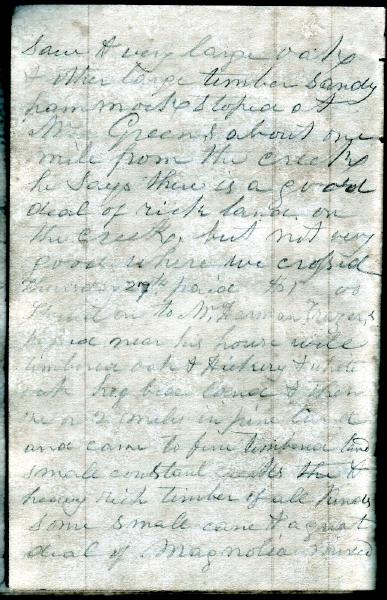 Saw & very large oaks
& other large timber sandy
hammock Stoped at
Mr Greens about one
mile from the creek
he says there is a good
deal of rich land on
the creek, but not very
good where we crossed
27th paid $1 00
on to Mr Harman
near his house well
timbered oak & Hickery & white
oak land & then
one or 2 miles in pine land
and came to fine timbered land
small creeks the &
heavy rich timber of all kinds
some small cane & a great
deal of Magnolia mixed